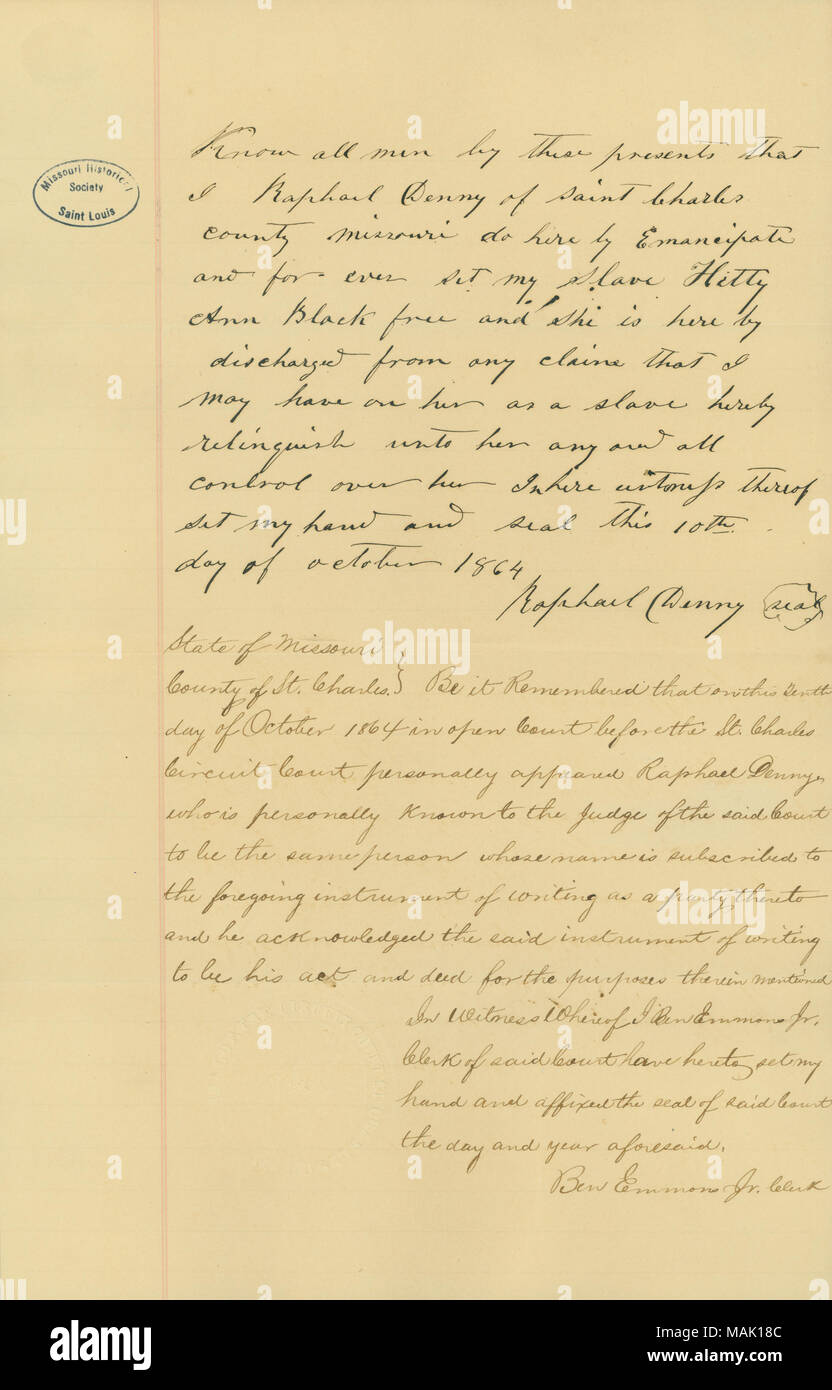 Missouri Historical
Society
Saint Louis
Know all men by these presents that
I Raphael Denny of Saint Charles
county missouri do here by Emancipate
and for ever set my slave Hetty
Ann Black free and she is here by
discharged from any claime that I
may have on her as a slave hereby
relinquish unto her any and all
control over her Inhere witness thereof
set my hand and seal this 10th
day of october 1864
Raphael Denny seal
State of Missouri
County of St. Charles. } Be it Remembered that on this Tenth
day of October 1864 in open Court before the St. Charles
Circuit Court personally appeared Raphael Denny,
who is personally Known to the Judge of the said Court
to be the same person whose name is subscribed to
the foregoing instrument of writing as a party thereto
and he acknowledged the said instrument of writing
to be his act and deed for the purposes therein mentioned
In Witness Whereof I Ben Emmons Jr.
Clerk of said Court have hereto set my
hand and affixed the seal of said Court
the day and year aforesaid.
Ben Emmons Jr. Clerk
alamy
alamy
Image ID: MAK18C
www.alamy.com